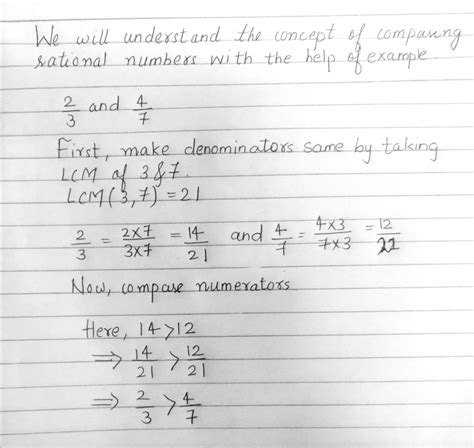 We will understand the concept of comparing
rational numbers with the help of example.
2/3 and 4/7
First, make denominators same by taking
LCM of 3 & 7.
LCM(3,7) = 21
2/3 = 2×7/3×7 = 14/21 and 4/7 = 4×3/7×3 = 12/22
Now, compare numerators
Here, 14>12
⇒ 14/21 > 12/21
⇒ 2/3 > 4/7